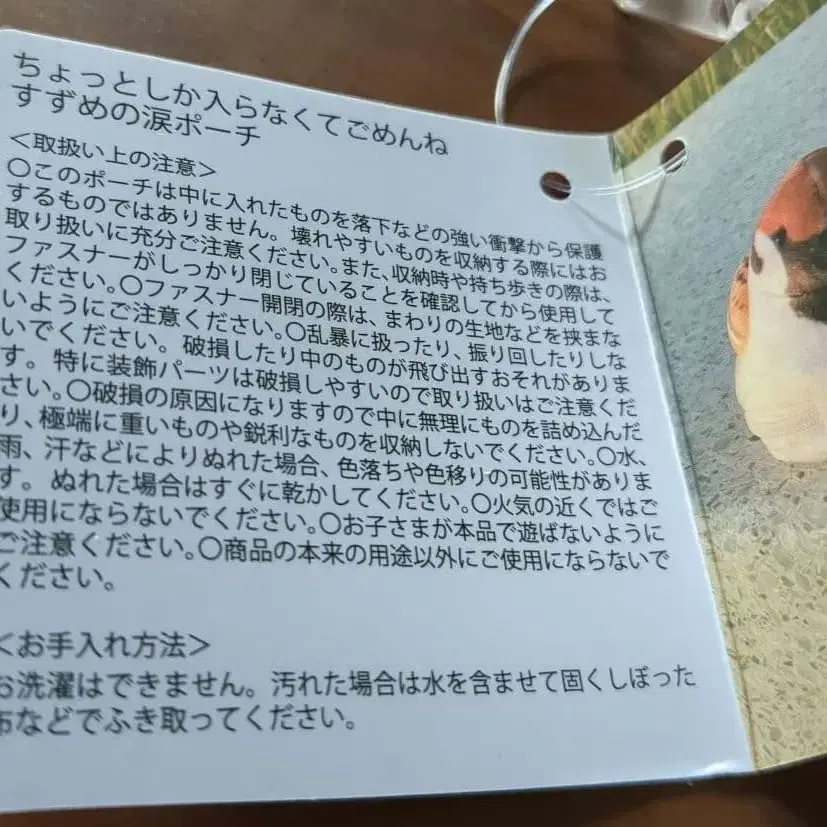 ちょっとしか入らなくてごめんね
すずめの涙ポーチ
<取扱い上の注意>
〇このポーチは中に入れたものを落下などの強い衝撃から保護
するものではありません。壊れやすいものを収納する際にはお
取り扱いに充分ご注意ください。また、収納時や持ち歩きの際は、
ファスナーがしっかり閉じていることを確認してから使用して
ください。〇ファスナー開閉の際は、まわりの生地などを挟まな
いようにご注意ください。〇乱暴に扱ったり、振り回したりしな
いでください。破損したり中のものが飛び出すおそれがありま
す。特に装飾パーツは破損しやすいので取り扱いはご注意くだ
さい。〇破損の原因になりますので中に無理にものを詰め込んだ
り、極端に重いものや鋭利なものを収納しないでください。〇水、
雨、汗などによりぬれた場合、色落ちや色移りの可能性がありま
す。ぬれた場合はすぐに乾かしてください。〇火気の近くではご
使用にならないでください。〇お子さまが本品で遊ばないように
ご注意ください。〇商品の本来の用途以外にご使用にならないで
ください。
<お手入れ方法>
お洗濯はできません。汚れた場合は水を含ませて固くしぼった
布などでふき取ってください。